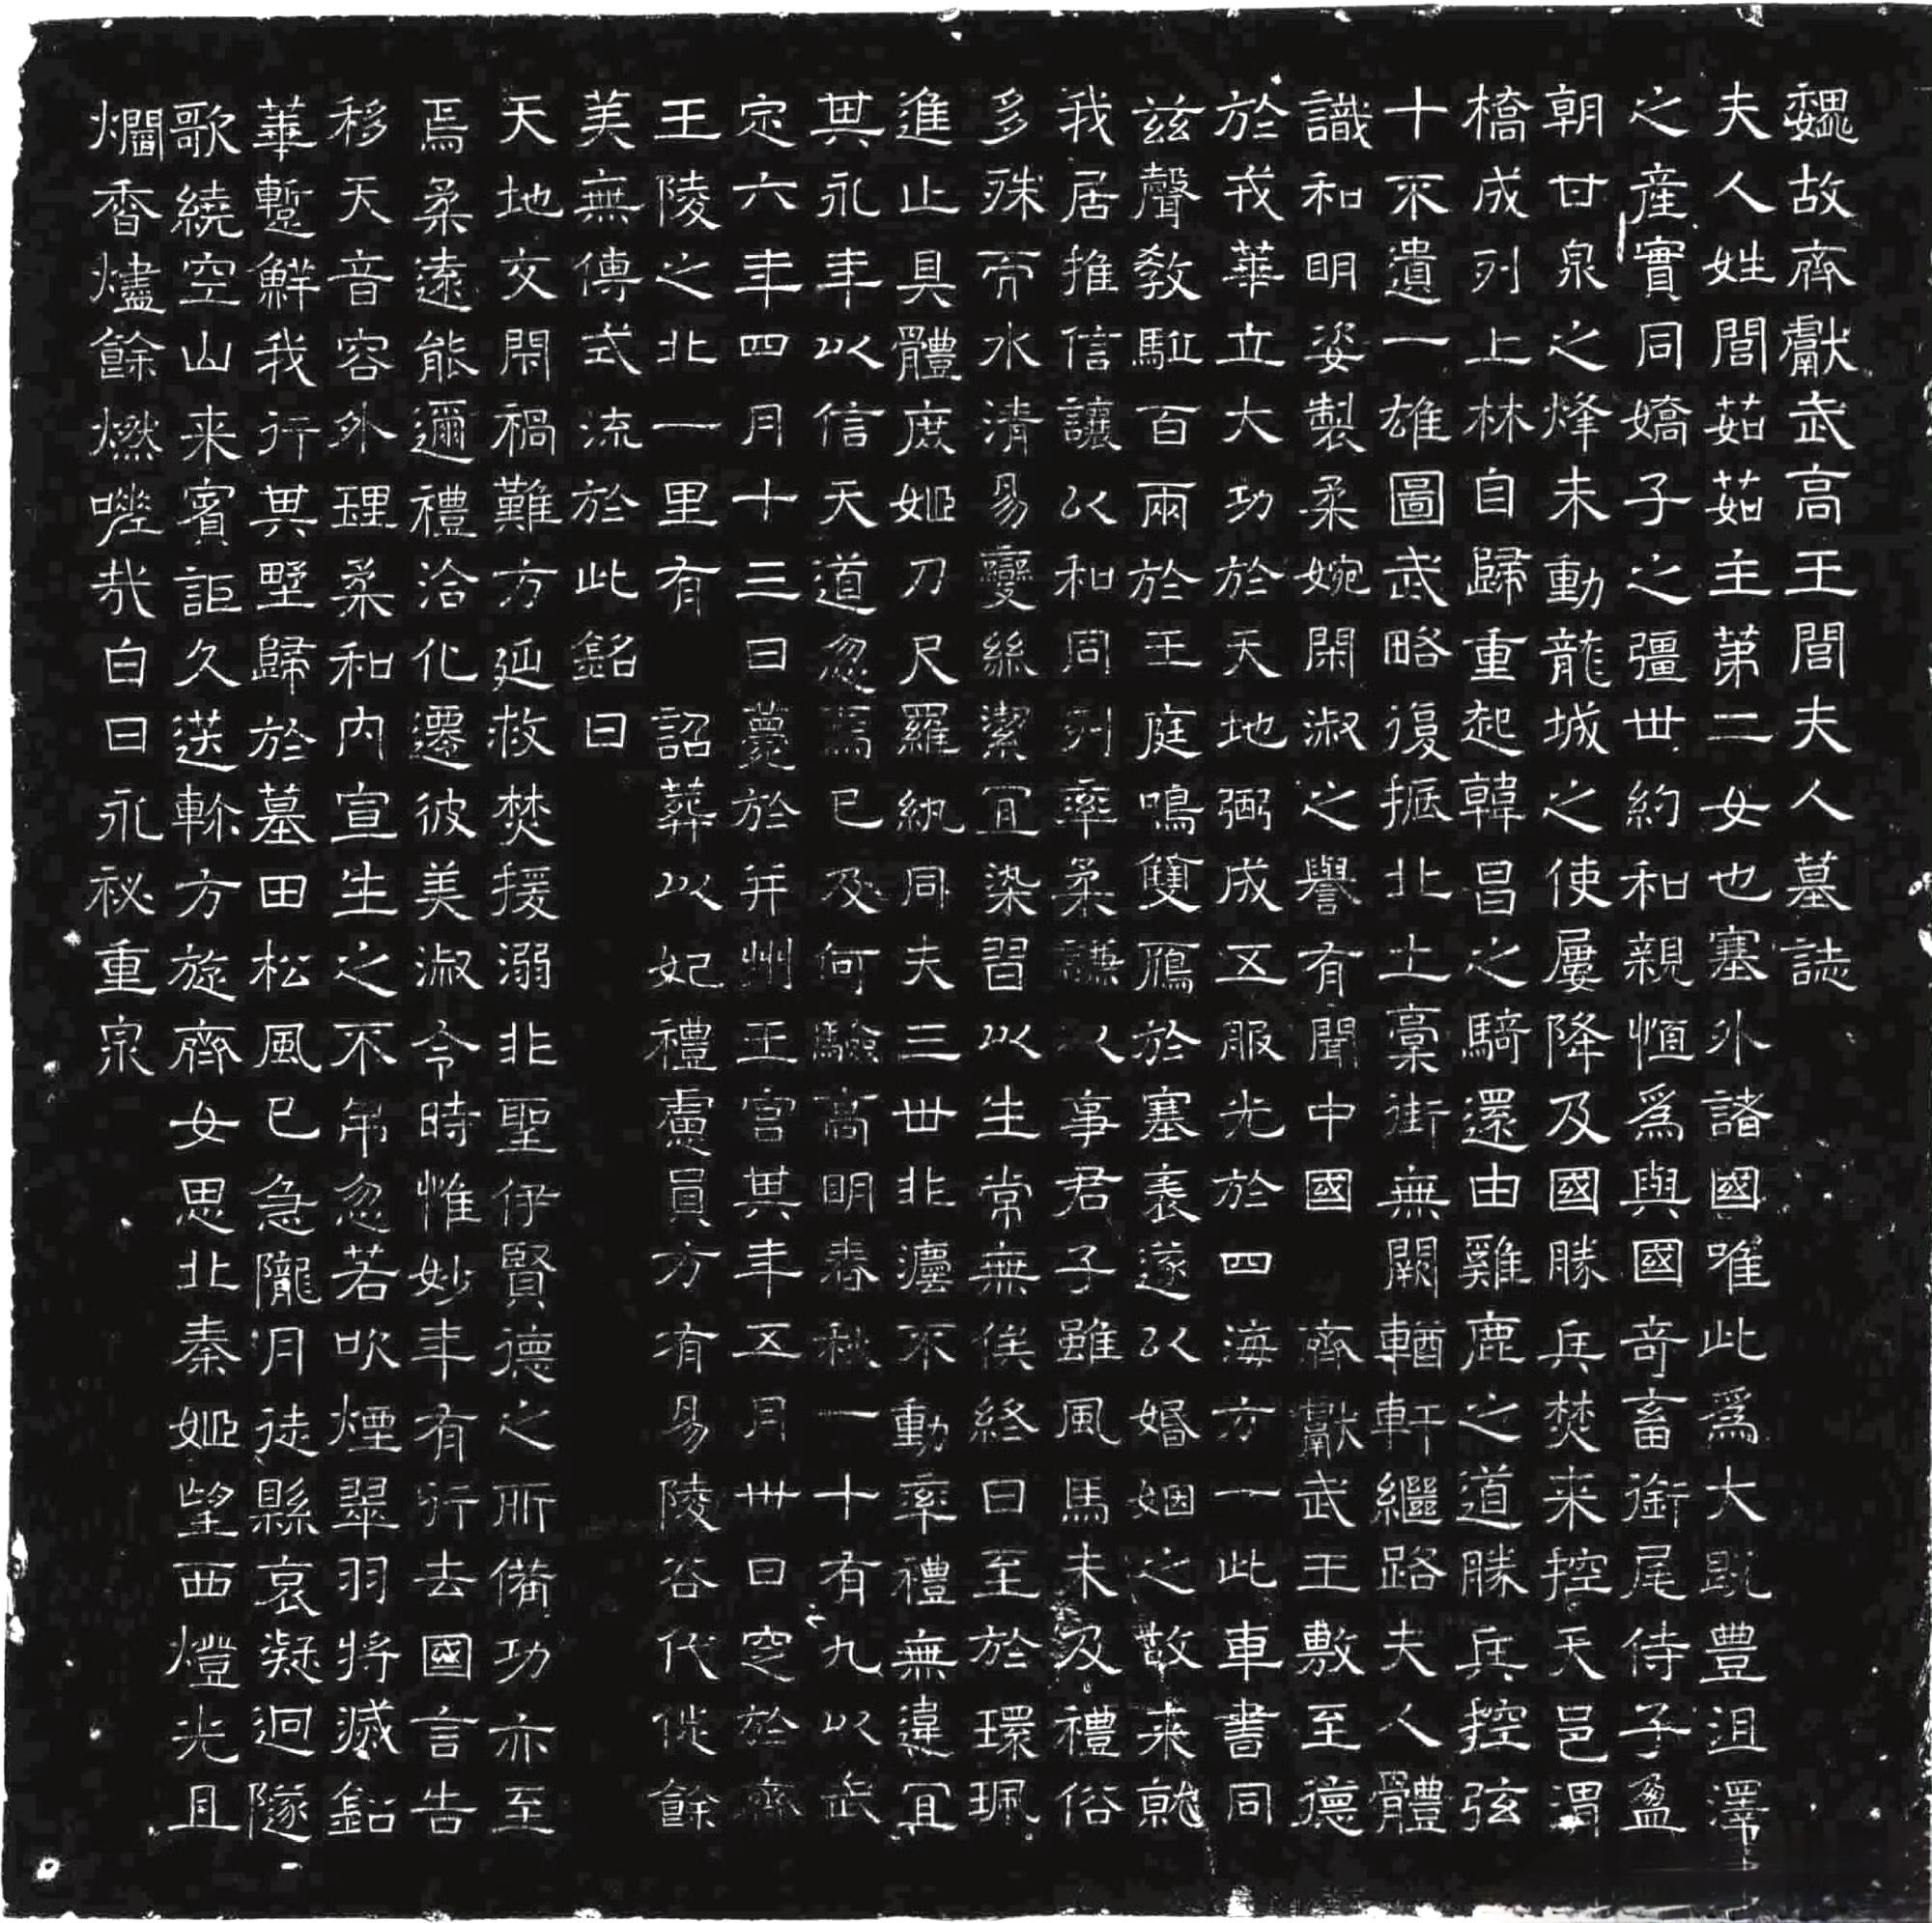 魏故齊獻武高王閭夫人墓誌
夫人姓閭茹茹主第二女也塞外諸國唯此爲大既豐沮澤
之産實同嬌子之彊世約和親恒爲與國奇畜銜尾侍子盈
朝甘泉之烽未動龍城之使屢降及國勝兵焚来控天邑渭
橋成列上林自歸重起韓昌之騎還由雞鹿之道勝兵控弦
十不遺一雄圖武略復振北土藁街無闕輶軒繼路夫人體
識和明姿製柔婉閑淑之譽有聞中國齊獻武王敷至德
於戎華立大功於天地弼成五服光於四海方一此車書同
兹聲教駈百兩於王庭鳴雙鴈於塞表遂以婚姻之故来就
我居推信讓以和同列率柔謙以事君子雖風馬未及禮俗
多殊而水清易變絲潔宜染習以生常無俟終日至於環珮
進止具體庶姬刀尺羅紈同夫三世非瀍不動率禮無違宜
其永年以信天道忽焉已及何驗高明春秋一十有九以武
定六年四月十三日薨於并州王宮其年五月卅日窆於齊
王陵之北一里有詔葬以妃禮慮員方有易陵谷代徙餘
美無傳式流於此銘曰
天地交閇禍難方延救焚援溺非聖伊賢德之所備功亦至
焉柔遠能邇禮洽化遷彼美淑令時惟妙年有行去國言告
移天音容外理柔和内宣生之不弔忽若吹煙翠羽將滅鉛
華蹔鮮我行其墅歸於墓田松風已急隴月徒縣哀凝迥隧
歌繞空山来賓詎久送軫方旋齊女思北秦姬望西燈光且
爛香燼餘燃嗟哉白日永祕重泉